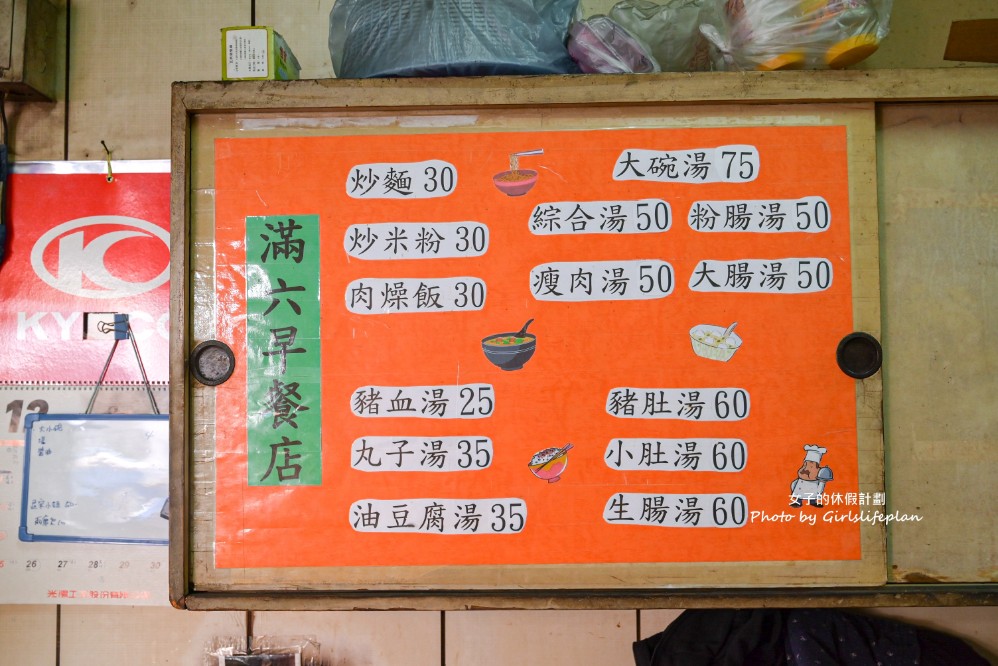 滿六早餐店
炒麵 30
炒米粉 30
肉燥飯 30
豬血湯 25
丸子湯 35
油豆腐湯 35
大碗湯 75
綜合湯 50
粉腸湯 50
瘦肉湯 50
大腸湯 50
豬肚湯 60
小肚湯 60
生腸湯 60
女子的休假計劃
Photo by Girlslifeplan
KY
12
26 27 28 29 30